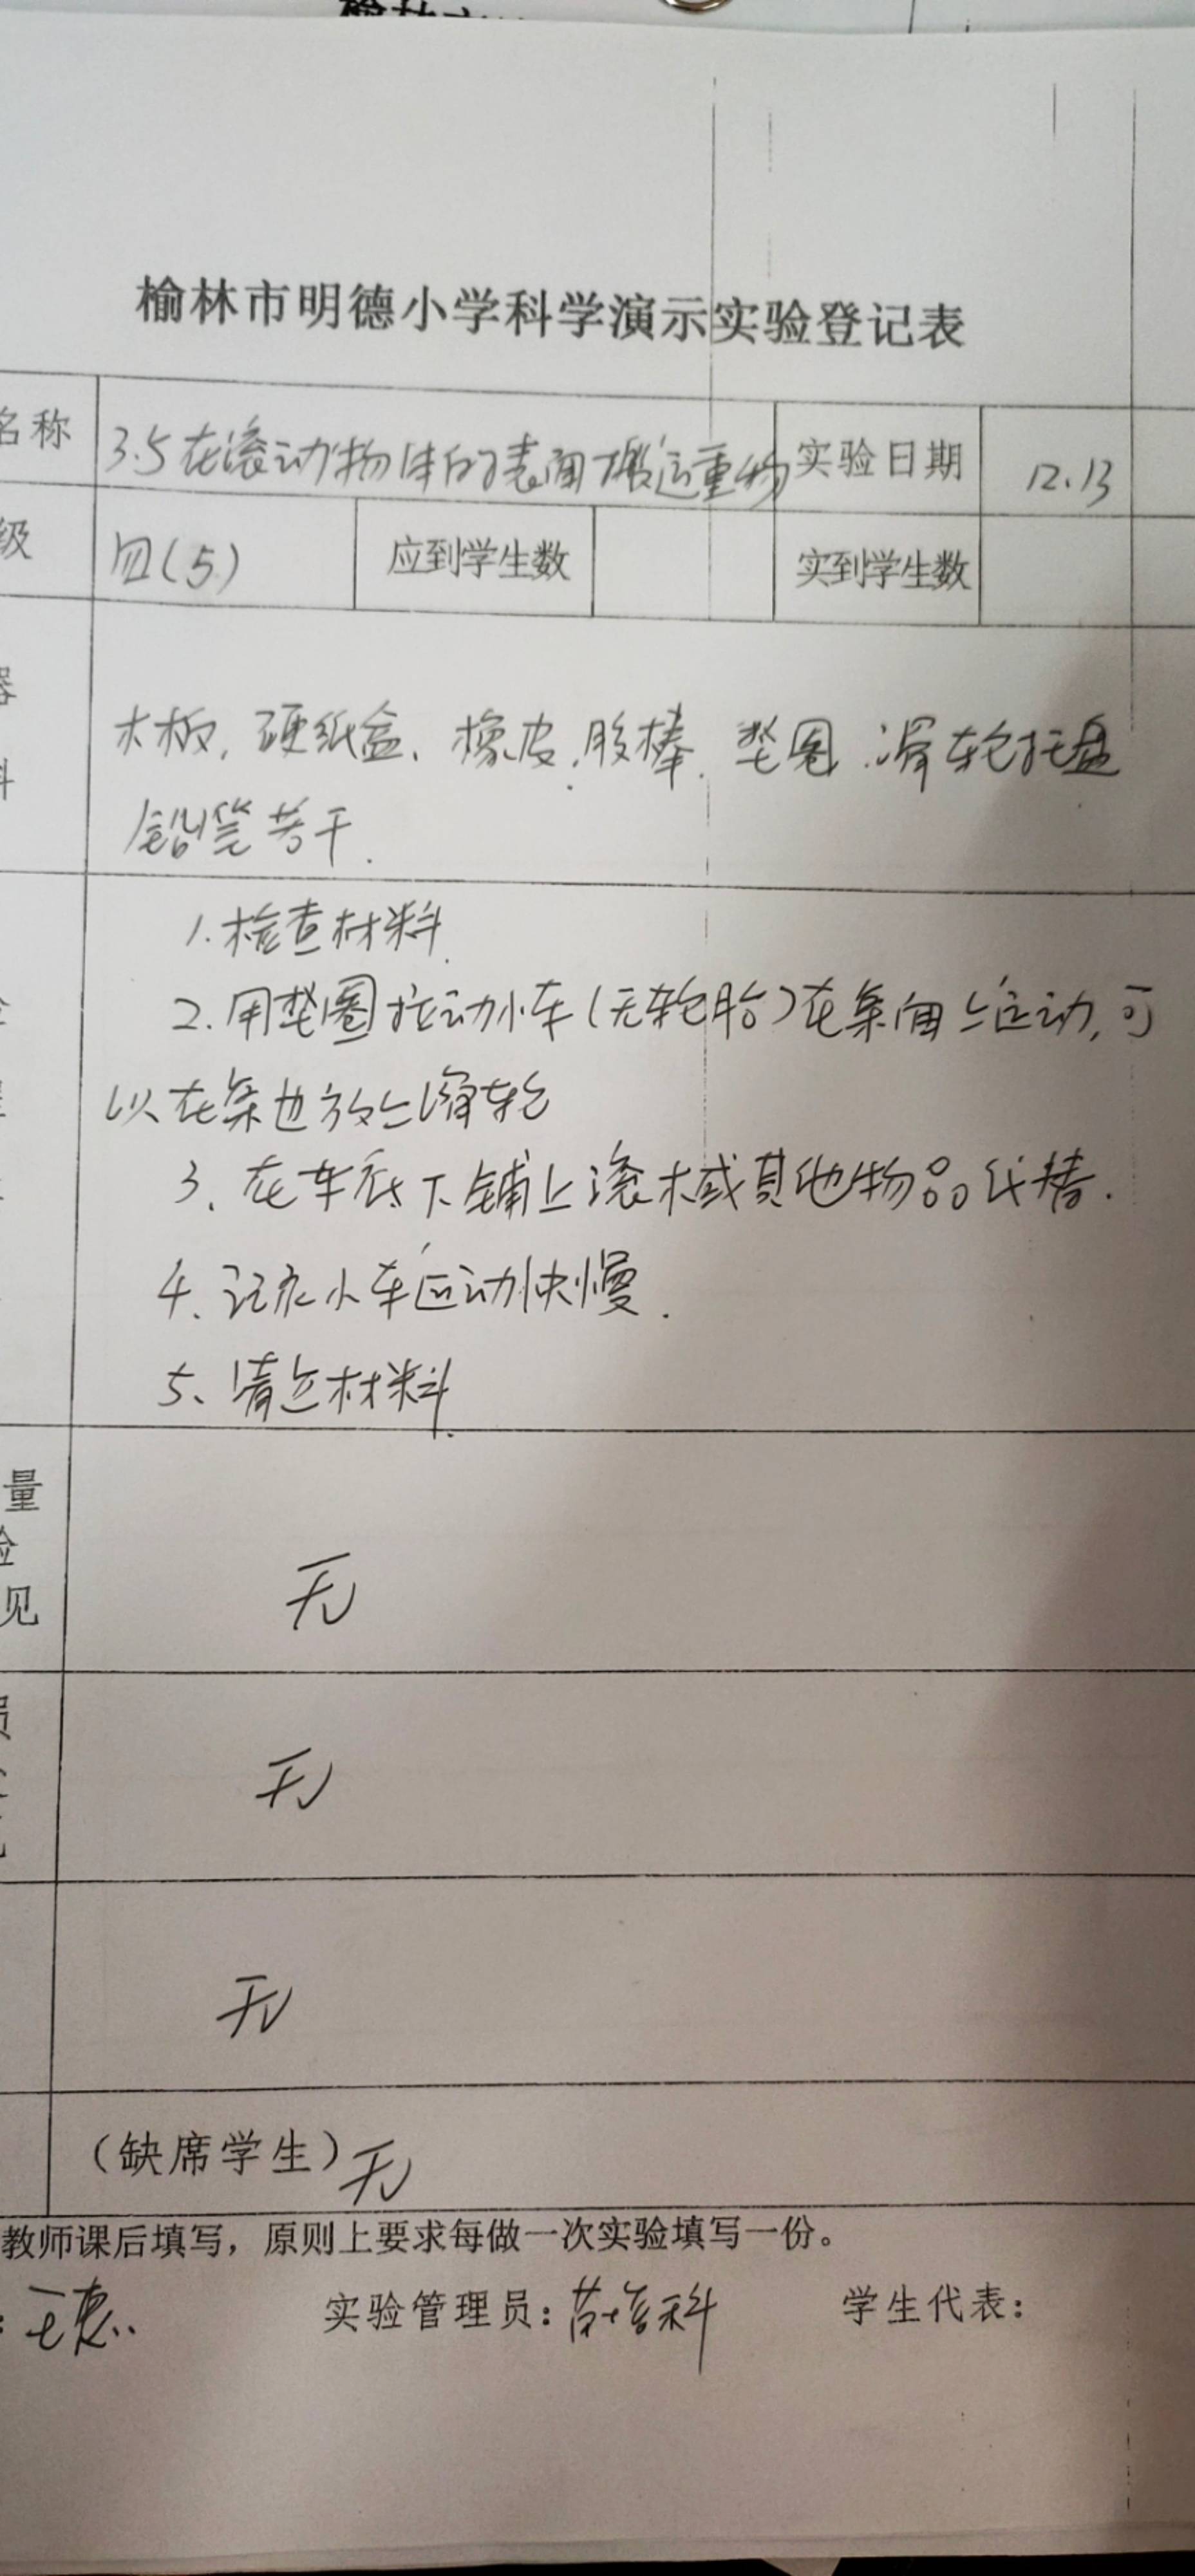 榆林市明德小学科学演示实验登记表
名称 3.5在滚动物体的表面搬运重物 实验日期 12.13
级 四(5) 应到学生数 实到学生数
木板、硬纸盒、橡皮、胶棒、垫圈、滑轮托盘
料
铅笔若干.
1.检查材料.
2.用垫圈拉动小车(无轮胎)在桌面上运动,可
以在桌边放上滑轮
3、在车底下铺上滚木或其他物品代替.
4、记录小车运动快慢.
5、清点材料.
量
见
无
无
无
(缺席学生)无
教师课后填写，原则上要求每做一次实验填写一份。
实验管理员： 学生代表：